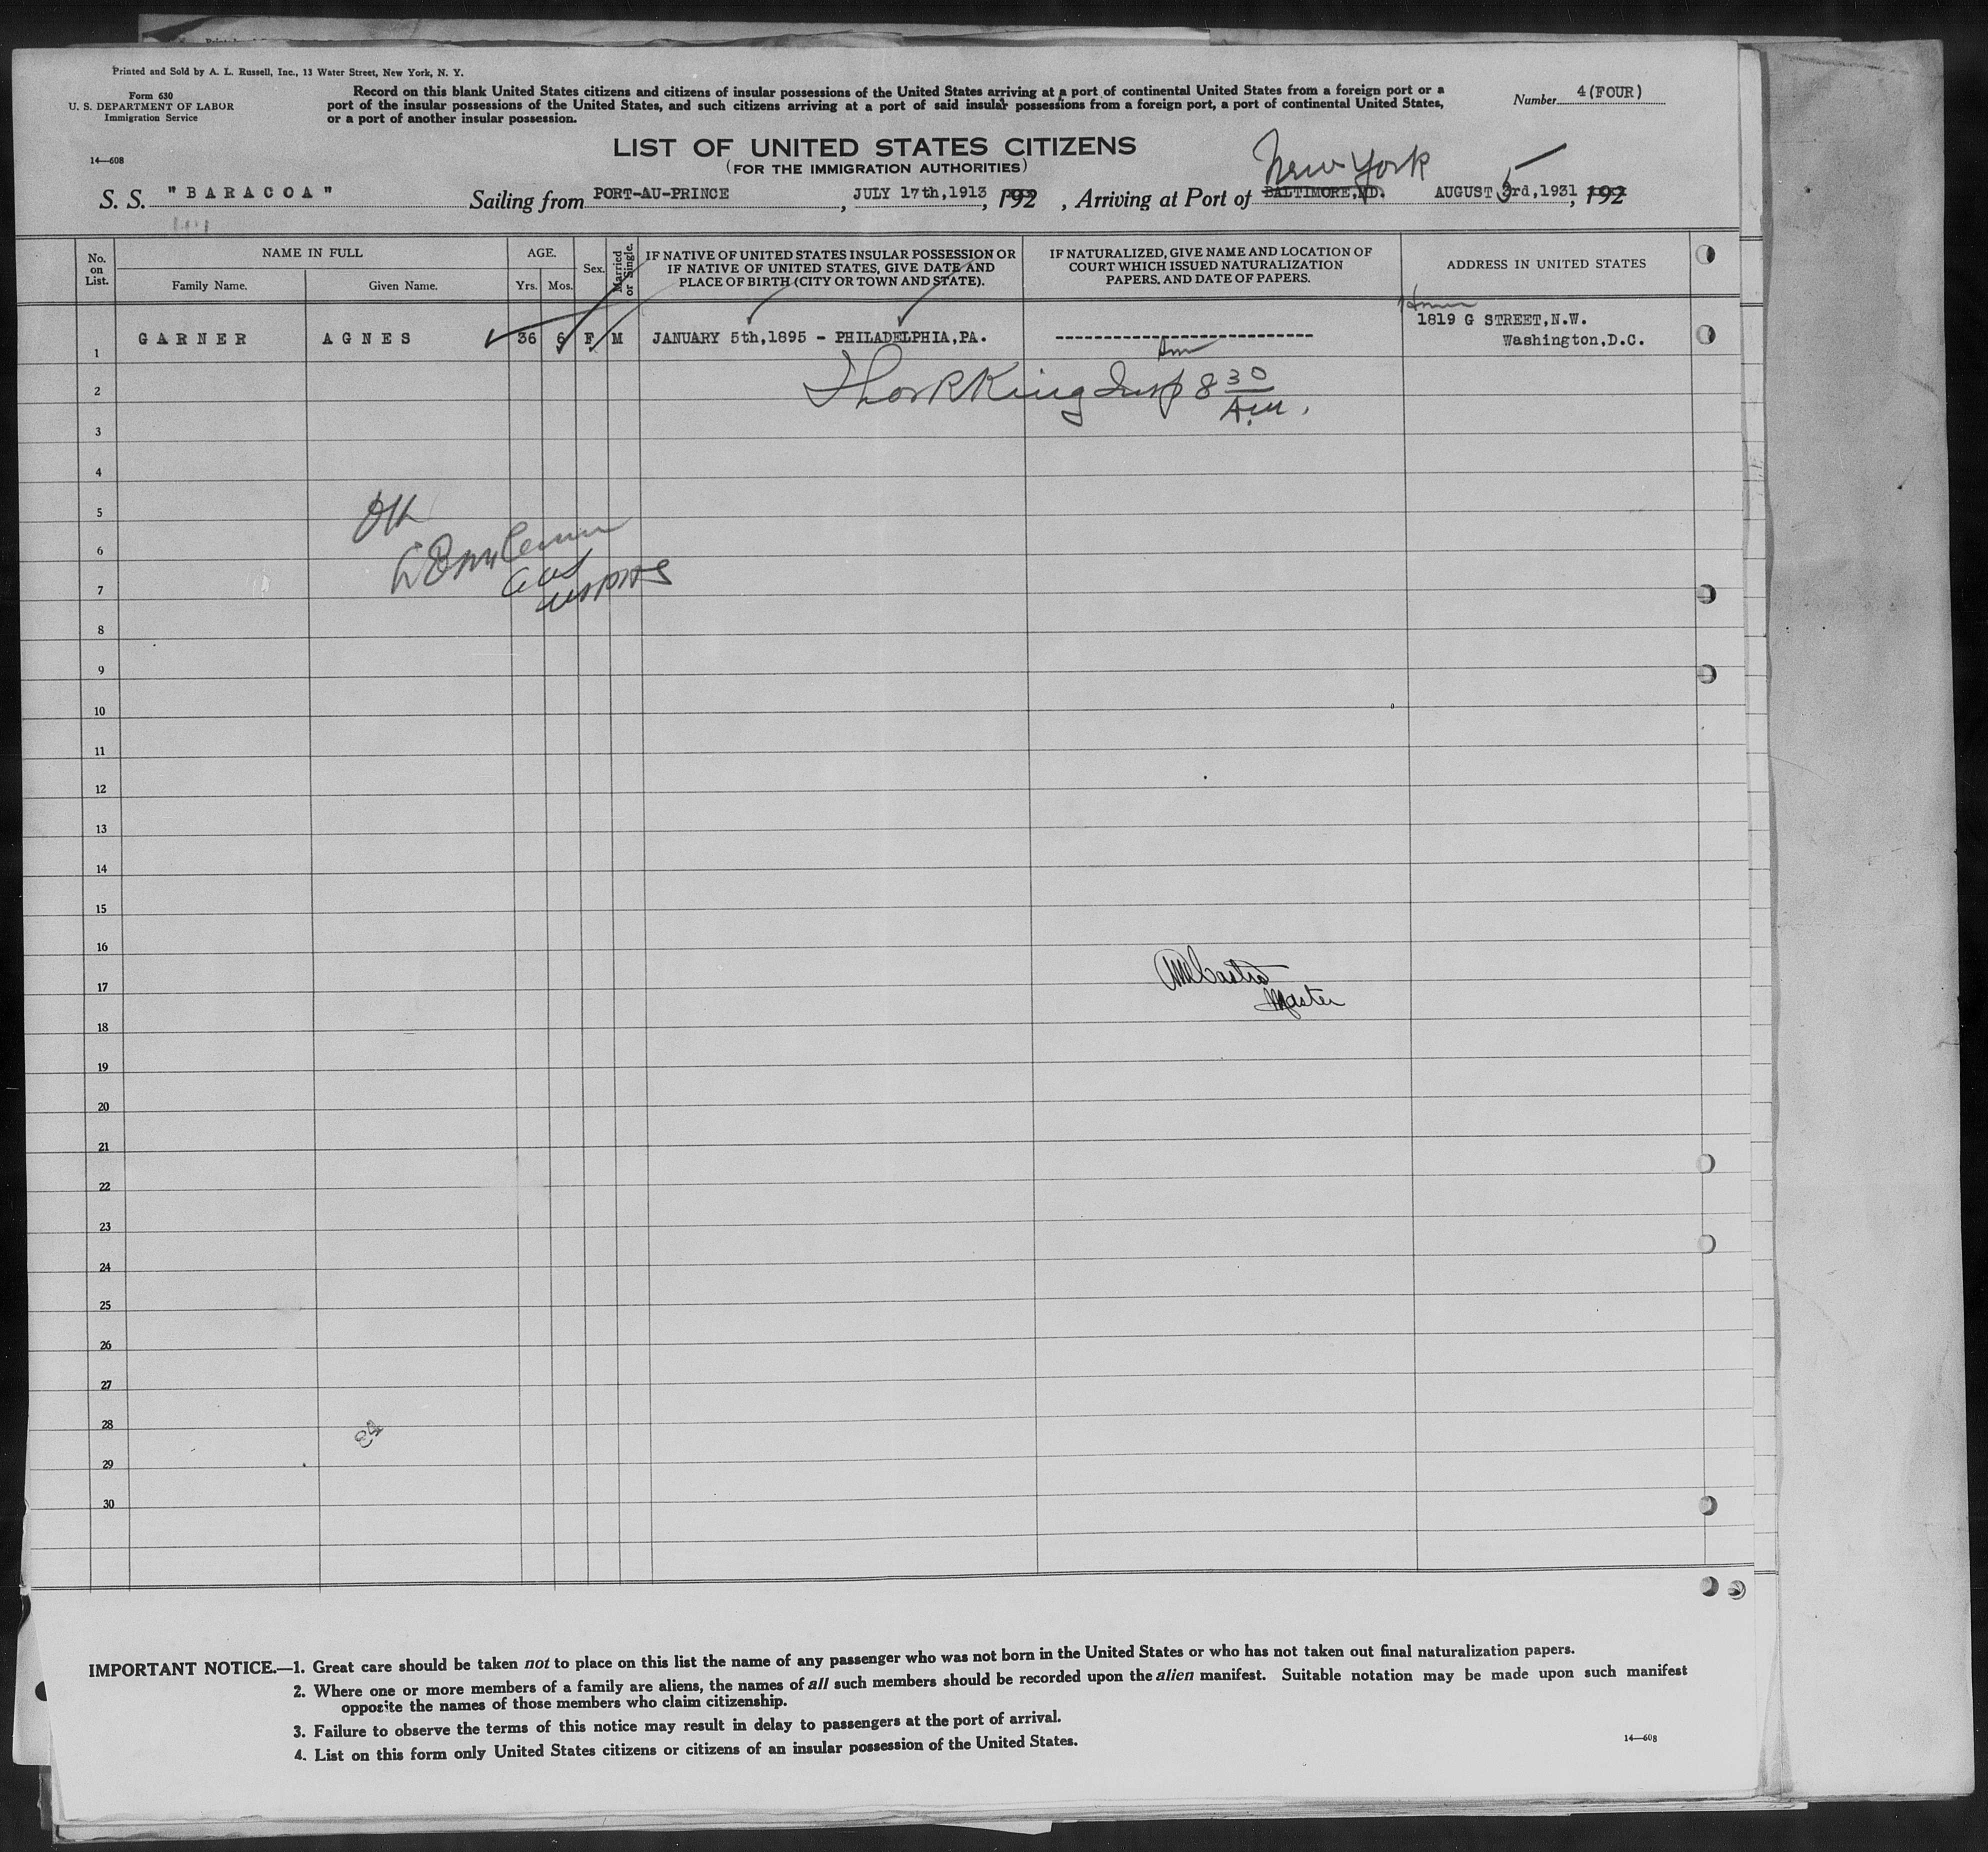 Printed and Sold by A. L. Russell, Inc., 13 Water Street, New York, N. Y.
Form 630
U. S. DEPARTMENT OF LABOR
Immigration Service
14—608
Record on this blank United States citizens and citizens of insular possessions of the United States arriving at a port of continental United States from a foreign port or a
port of the insular possessions of the United States, and such citizens arriving at a port of said insular possessions from a foreign port, a port of continental United States,
or a port of another insular possession.
Number 4(FOUR)
LIST OF UNITED STATES CITIZENS
(FOR THE IMMIGRATION AUTHORITIES)
New York
S. S. "BARACOA" Sailing from PORT-AU-PRINCE, JULY 17th,1913, 192 , Arriving at Port of BALTIMORE,MD. AUGUST 5 3rd,1931, 192
No. on List.
NAME IN FULL
Family Name. Given Name.
AGE.
Yrs. Mos.
Sex.
Married or Single.
IF NATIVE OF UNITED STATES INSULAR POSSESSION OR
IF NATIVE OF UNITED STATES, GIVE DATE AND
PLACE OF BIRTH (CITY OR TOWN AND STATE).
IF NATURALIZED, GIVE NAME AND LOCATION OF
COURT WHICH ISSUED NATURALIZATION
PAPERS, AND DATE OF PAPERS.
ADDRESS IN UNITED STATES
1 GARNER AGNES 36 6 F M JANUARY 5th,1895 - PHILADELPHIA,PA. ----------------------------- 1819 G STREET,N.W.
Washington,D.C.
2 Thos R King Insp 8 30
A.M.
3
4
5 OK
6
7
8
9
10
11
12
13
14
15
16
17 Master
18
19
20
21
22
23
24
25
26
27
28
29
30
IMPORTANT NOTICE.—1. Great care should be taken not to place on this list the name of any passenger who was not born in the United States or who has not taken out final naturalization papers.
2. Where one or more members of a family are aliens, the names of all such members should be recorded upon the alien manifest. Suitable notation may be made upon such manifest
opposite the names of those members who claim citizenship.
3. Failure to observe the terms of this notice may result in delay to passengers at the port of arrival.
4. List on this form only United States citizens or citizens of an insular possession of the United States.
14—608